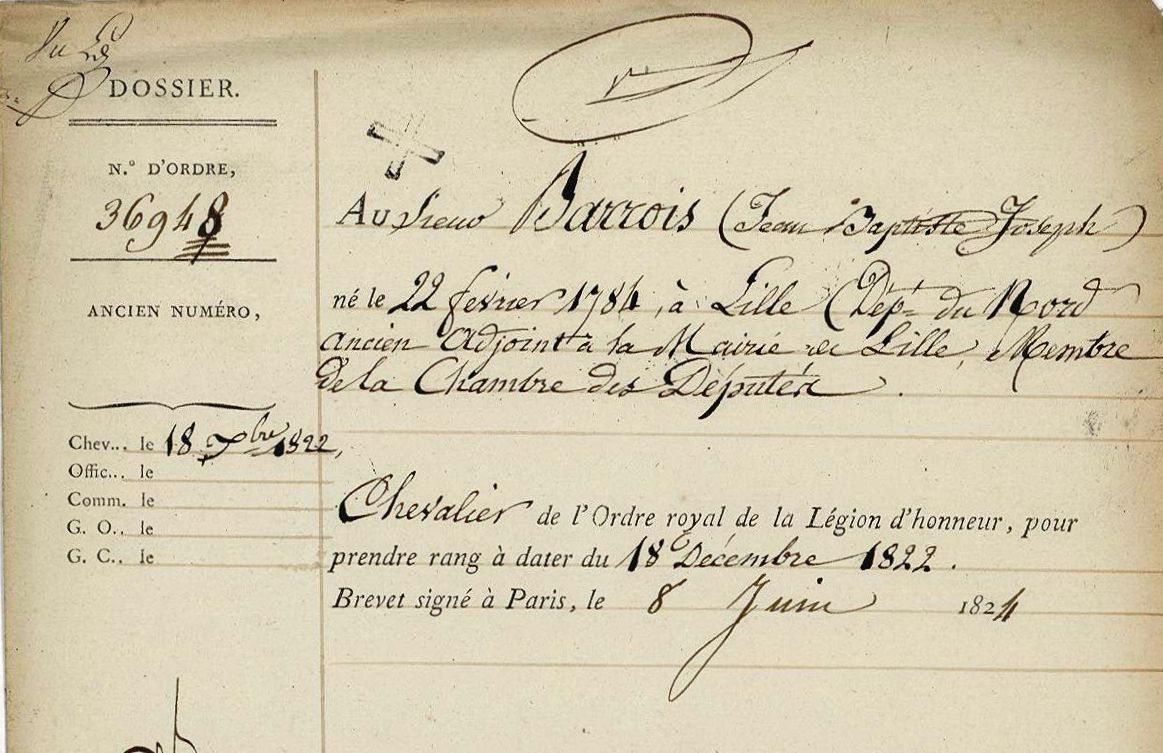 Vu
DOSSIER.
N.° D'ORDRE,
36948
ANCIEN NUMÉRO,
Chev... le 18 Xbre 1822,
Offic... le
Comm. le
G. O.. le
G. C.. le
Au Sieur Barrois (Jean Baptiste Joseph)
né le 22 février 1784, à Lille (Dépt du Nord
ancien Adjoint à la Mairie de Lille, Membre
de la Chambre des Députés.
Chevalier de l'Ordre royal de la Légion d'honneur, pour
prendre rang à dater du 18 Décembre 1822.
Brevet signé à Paris, le 8 Juin 1824